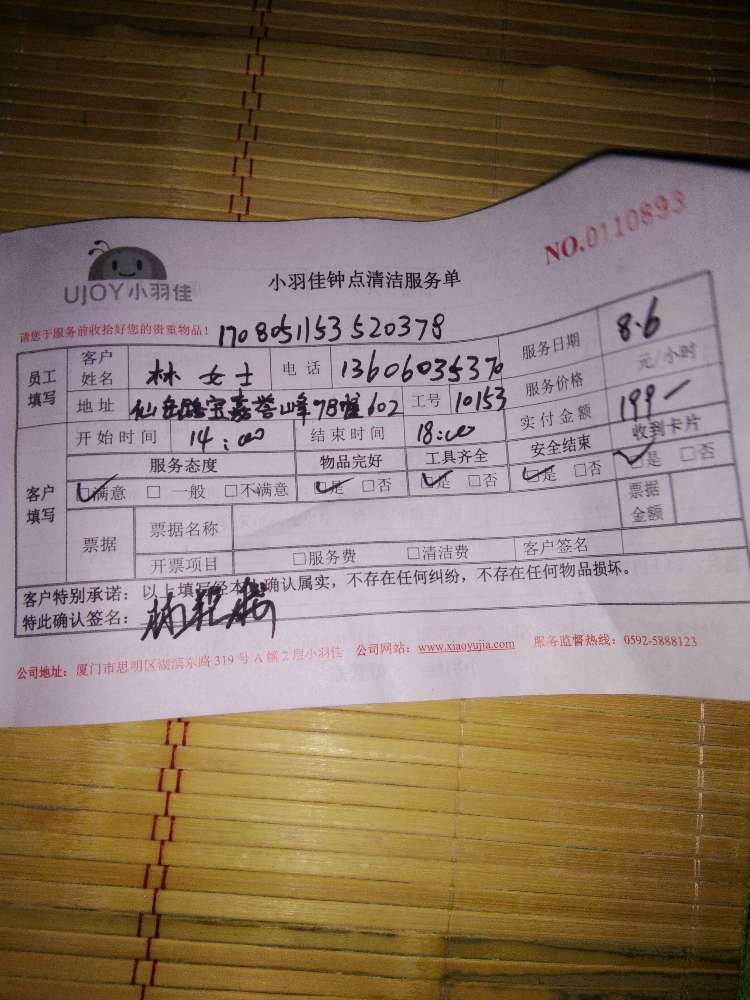 NO.0110893
UJOY小羽佳
小羽佳钟点清洁服务单
请您于服务前收拾好您的贵重物品！ 1708051153520378
员工填写 客户姓名 林女士 电话 13606035370 服务日期 8.6
地址 仙岳路宝嘉誉峰7B栋602 工号 10153 服务价格 元/小时
客户填写 开始时间 14:00 结束时间 18:00 实付金额 199
服务态度 物品完好 工具齐全 安全结束 收到卡片
☑满意 □一般 □不满意 ☑是 □否 ☑是 □否 ☑是 □否 ☑是 □否
票据 票据名称 票据金额
开票项目 □服务费 □清洁费 客户签名
客户特别承诺：以上填写经本人确认属实，不存在任何纠纷，不存在任何物品损坏。
特此确认签名：
公司地址：厦门市思明区湖滨东路319号A幢2层小羽佳 公司网站：www.xiaoyujia.com 服务监督热线：0592-5888123